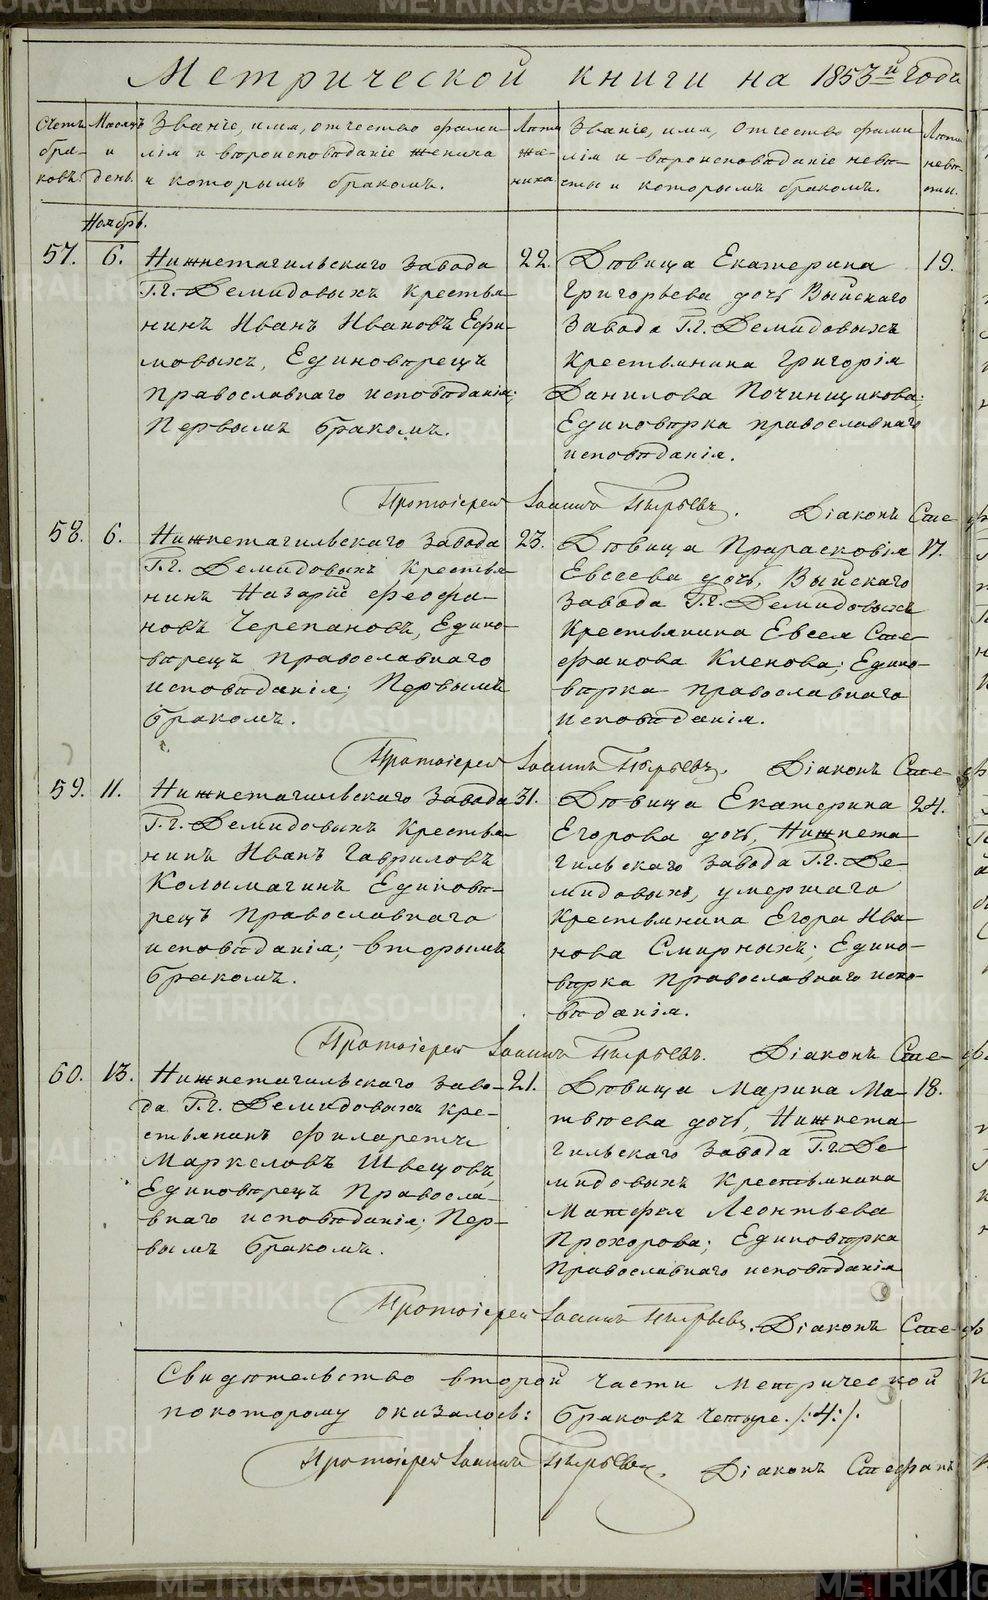 Метрической книги на 1853й годъ
Счетъ бра-ковъ.
Месяцъ и день.
Званіе, имя, отчество фами-
лія и вѣроисповѣданіе жениха
и которымъ бракомъ.
Лета же-ниха
Званіе, имя, отчество фами-
лія и вѣроисповѣданіе невѣ-
сты и которымъ бракомъ.
Лета невѣ-сты.
Ноябрь.
57. 6. Нижнетагильскаго завода
Г.г. Демидовыхъ Крестья-
нинъ Иванъ Ивановъ Ефи-
мовыхъ, Единовѣрецъ
православнаго исповѣданія;
Первымъ бракомъ.
22.
Дѣвица Екатерина
Григорьева дочь Выйскаго
Завода Г.г. Демидовыхъ
Крестьянина Григорія
Данилова Починщикова;
Единовѣрка православнаго
исповѣданія.
19.
Протоіерей Іоаннъ Пырьевъ. Діаконъ Сте-
58. 6. Нижнетагильскаго завода
Г.г. Демидовыхъ Крестья-
нинъ Назарій Феофи-
новъ Черепановъ, Едино-
вѣрецъ православнаго
исповѣданія; Первымъ
бракомъ.
23.
Дѣвица Прарасковія
Евсеева дочь, Выйскаго
завода Г.г. Демидовыхъ
Крестьянина Евсея Сте-
фанова Кленова; Едино-
вѣрка православнаго
исповѣданія.
17.
Протоіерей Іоаннъ Пырьевъ. Діаконъ Сте-
59. 11. Нижнетагильскаго завода
Г.г. Демидовыхъ Крестья-
нинъ Иванъ Гавриловъ
Колымагинъ Единовѣ-
рецъ православнаго
исповѣданія; вторымъ
бракомъ.
31.
Дѣвица Екатерина
Егорова дочь, Нижнета-
гильскаго завода Г.г. Де-
мидовыхъ, умершаго
Крестьянина Егора Ива-
нова Смирныхъ; Едино-
вѣрка православнаго испо-
вѣданія.
24.
Протоіерей Іоаннъ Пырьевъ. Діаконъ Сте-
60. 13. Нижнетагильскаго заво-
да Г.г. Демидовыхъ кре-
стьянинъ Филаретъ
Маркеловъ Швецовъ,
Единовѣрецъ Правосла-
внаго исповѣданія; Пер-
вымъ бракомъ.
21.
Дѣвица Марина Ма-
твѣева дочь, Нижнета-
гильскаго завода Г.г. Де-
мидовыхъ Крестьянина
Матфея Леонтьева
Прохорова; Единовѣрка
Православнаго исповѣданія
18.
Протоіерей Іоаннъ Пырьевъ. Діаконъ Сте-
Свидѣтельство второй части Метрической
по которому оказалось: браковъ четыре. /:4:/.
Протоіерей Іоаннъ Пырьевъ. Діаконъ Стефанъ
METRIKI.GASO-URAL.RU